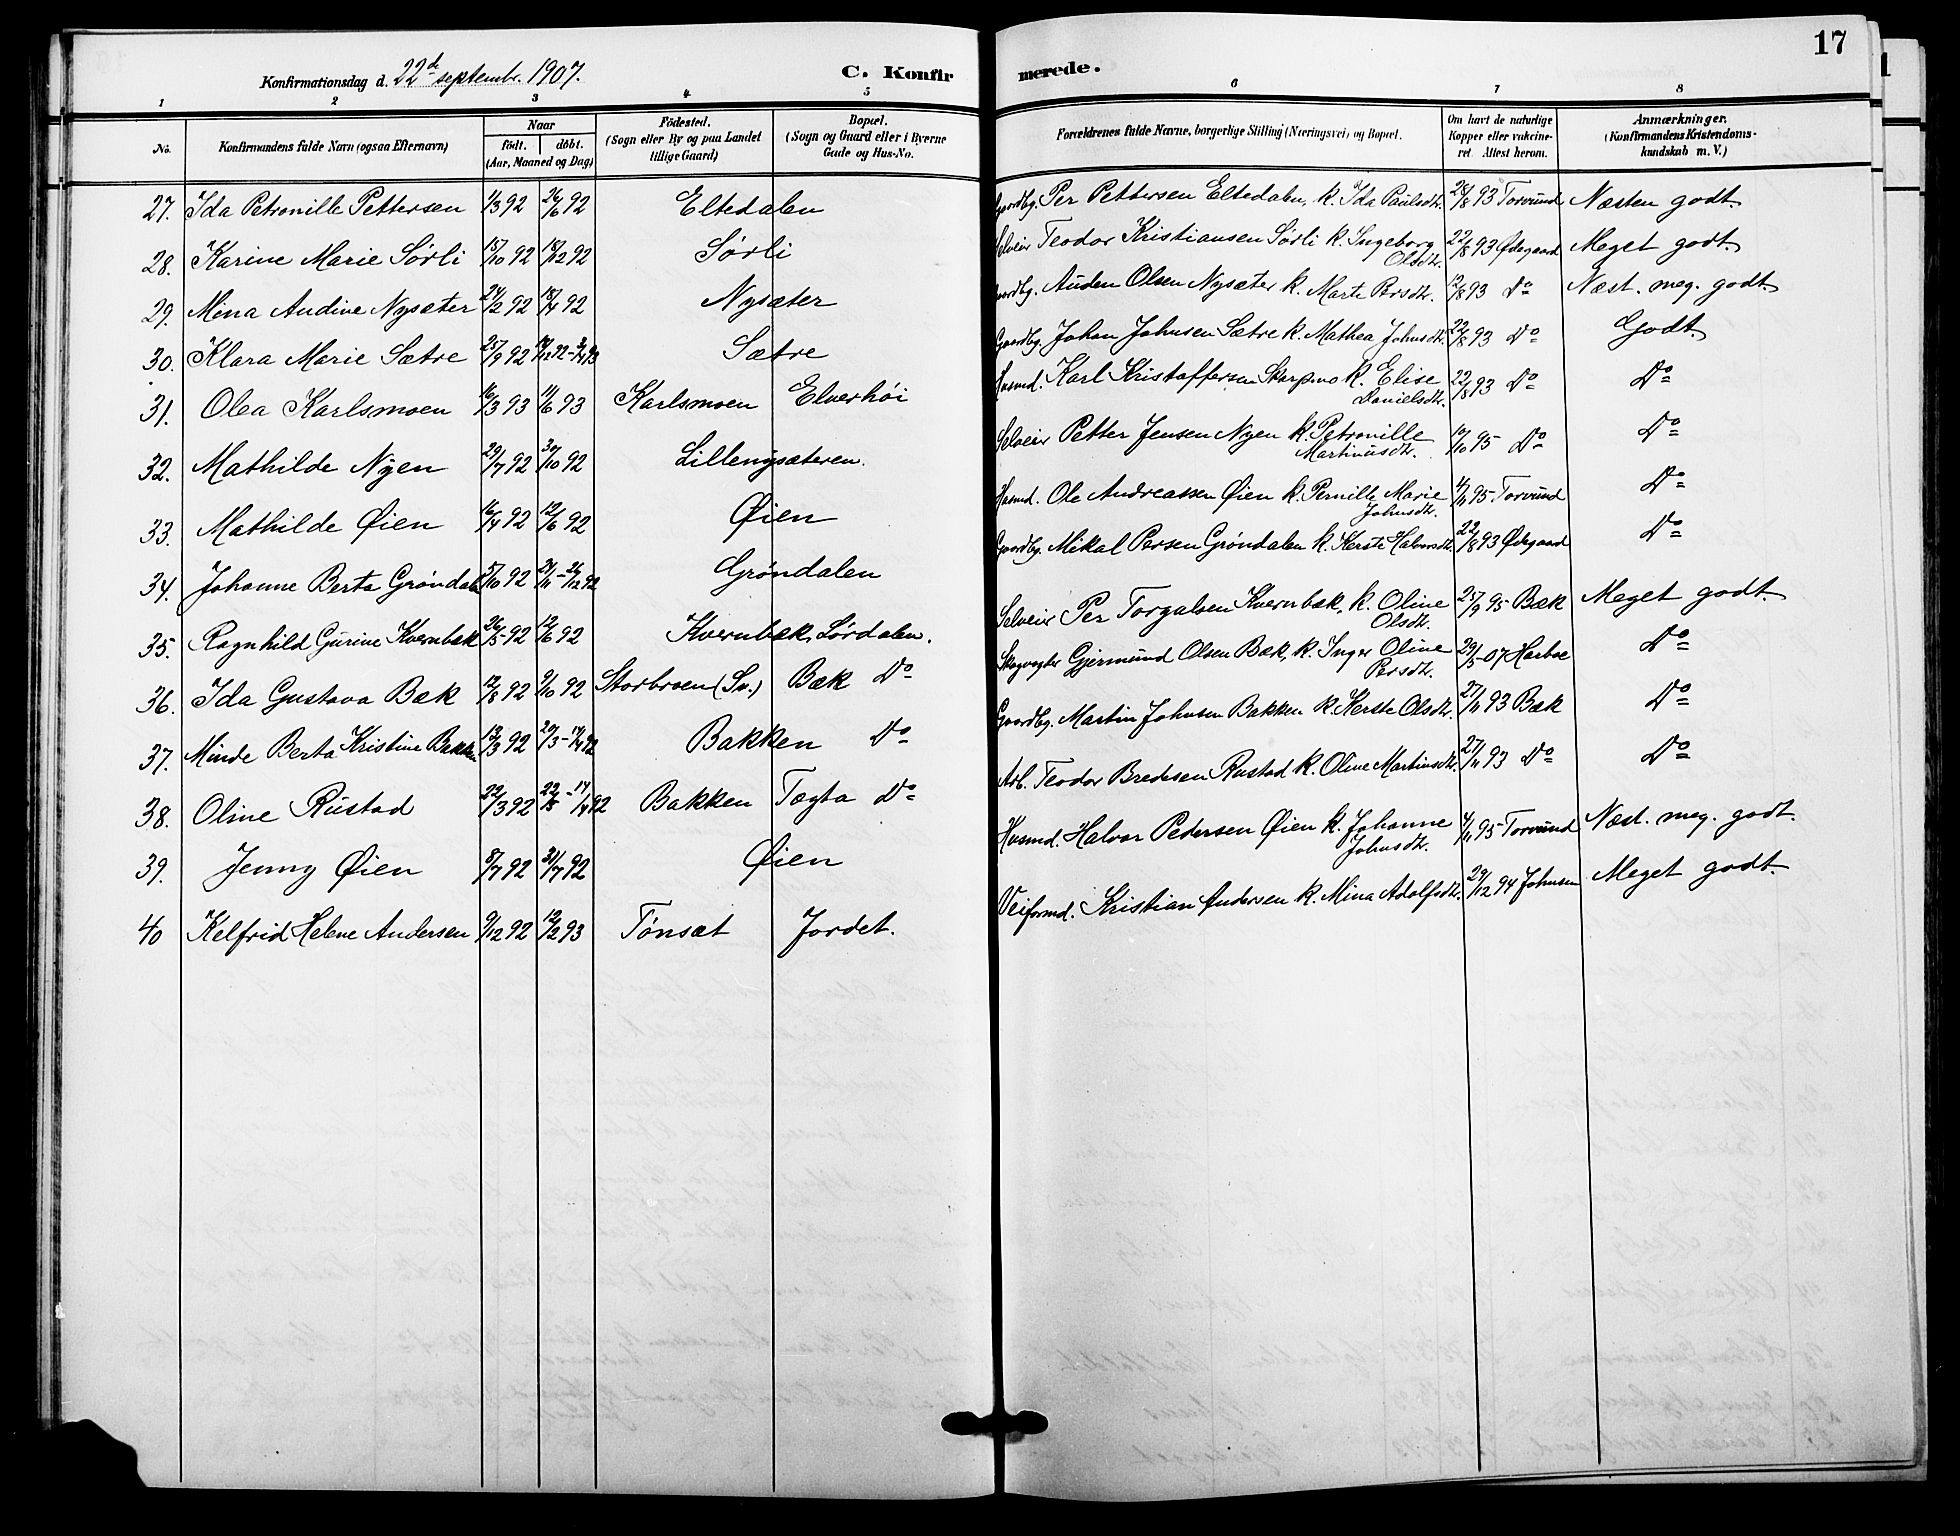 17
Konfirmationsdag d. 22de septembr. 1907.
C. Konfirmerede.
1 2 3 4 5 6 7 8
No. Konfirmandens fulde Navn (ogsaa Efternavn) Naar födt. döbt. (Aar, Maaned og Dag) Födested. (Sogn eller By og paa Landet tillige Gaard) Bopæl. (Sogn og Gaard eller i Byerne Gade og Hus-No. Forældrenes fulde Navne, borgerlige Stilling (Næringsvei) og Bopæl. Om havt de naturlige Kopper eller vakcineret. Attest herom. Anmærkninger. (Konfirmandens Kristendomskundskab m. V.)
27. Ida Petronille Pettersen 1/3 92 26/6 92 Eltedalen Gaardbg. Per Pettersen Eltedalen, k. Ida Paulsdtr. 28/8 93 Torvund Næsten godt.
28. Karine Marie Sørli 15/10 92 18/12 92 Sørli Selveir Teodor Kristiansen Sørli k. Ingeborg Olsdtr. 22/8 93 Ødegaard Meget godt.
29. Mina Audine Nysæter 24/2 92 18/4 92 Nysæter Gaardbg. Auden Olsen Nysæter k. Marte Persdtr. 12/8 93 Do Næst. meg. godt.
30. Klara Marie Sætre 25/9 92 Sætre Gaardbg. Johan Johnsen Sætre k. Mathea Johnsdtr. 22/8 93 Do Godt.
31. Olea Karlsmoen 16/3 93 11/6 93 Karlsmoen Elverhöi Husmd. Karl Kristoffersen k. Elise Danielsdtr. 22/8 93 Do Do
32. Mathilde Nyen 29/7 92 30/10 92 Lillenysæteren. Selveir Petter Jensen Nyen k. Petronille Martinusdtr. 19/10 95 Do Do
33. Mathilde Øien 16/4 92 12/6 92 Øien Husmd. Ole Andreassen Øien k. Pernille Marie Johnsdtr. 4/11 95 Torvund Do
34. Johanne Berta Gröndalen 5/10 92 Gröndalen Gaardbg. Mikal Persen Gröndalen k. Kerste Halvorsdtr. 22/8 93 Ødegaard Do
35. Ragnhild Gurine Kvernbæk 26/5 92 12/6 92 Kvernbæk, Lördalen. Selveir Per Torgalsen Kvernbæk, k. Oline Olsdtr. 25/9 95 Bæk Meget godt.
36. Ida Gustava Bæk 12/8 92 9/10 92 Storbroen (Sv.) Bæk Do Skogvogter Gjermund Olsen Bæk, k. Inger Oline Persdtr. 29/5-07 Harboe Do
37. Minde Berta Kristine Bakken 13/3 92 Bakken Do Gaardbg. Martin Johnsen Bakken k. Kerste Olsdtr. 27/11 93 Bæk Do
38. Oline Rustad 22/3 92 Bakken Tægta Do Arb. Teodor Bredesen Rustad k. Oline Martinsdtr. 27/11 93 Do Do
39. Jenny Øien 8/7 92 31/7 92 Øien Husmd. Halvor Pedersen Øien k. Johanne Johnsdtr. 4/11 95 Torvund Næst. meg. godt.
40 Kelfrid Helene Andersen 9/12 92 12/2 93 Tönsæt Jordet. Veiformd. Kristian Andersen k. Mina Adolfsdtr. 29/12 94 Johnsen Meget godt.